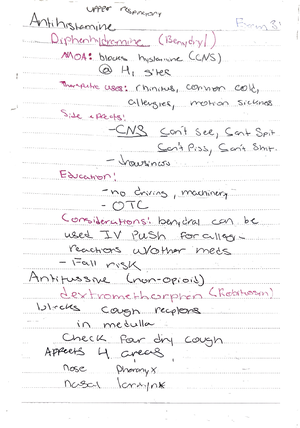 upper respiratory
Antihistamine
Diphenhydramine (Benydryl)
MOA: blocks histamine (CNS)
@ H, sites
Therapeutic uses: rhinitus, common cold,
allergies, motion sickness
Side effects:
-CNS Can't See, Can't Spit
Can't Piss, Can't Shit.
- drowsiness
Education:
- no driving, machinery
- OTC
Considerations: benydral can be
used IV push for allergic
reactions w/other meds
- Fall risk
Antitussive (non-opioid)
dextromethorphen (Robitussin)
blocks cough receptors
in medulla
Check for dry cough
Affects 4 areas
nose pharynx
nasal larynx